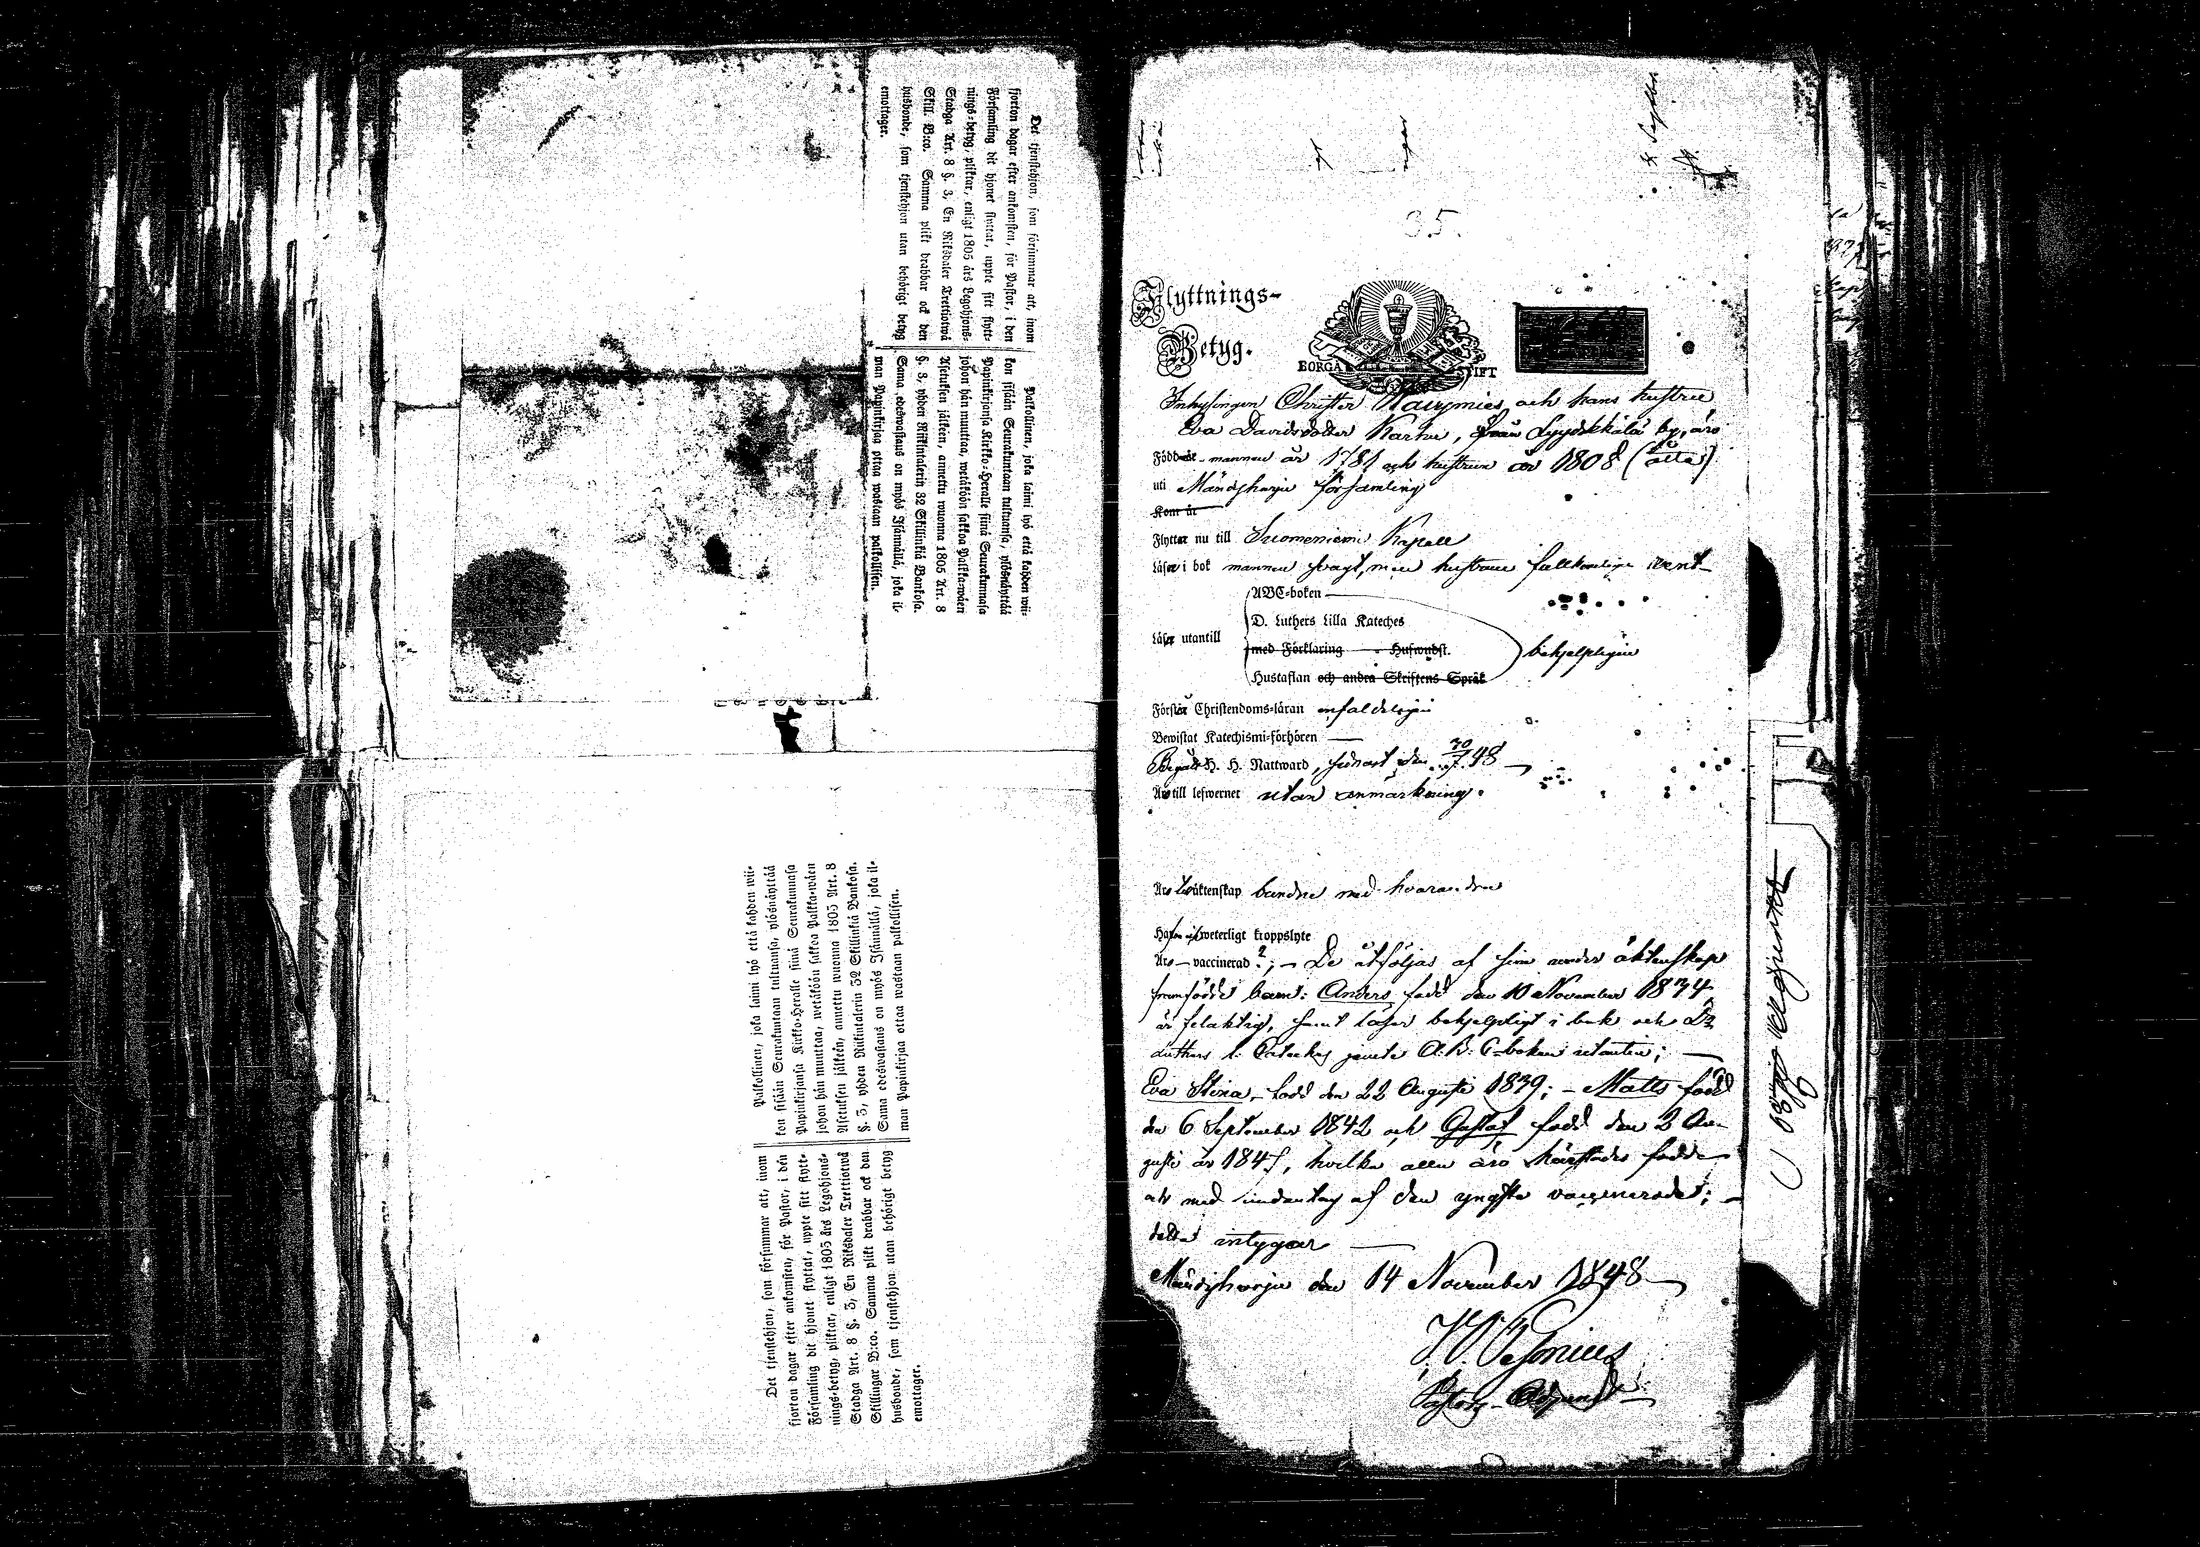 Det tjenstehjon, som försummar att, inom
fjorton dagar efter ankomsten, för Pastor, i den
Församling dit hjonet flyttat, uppte sitt flytt-
nings-betyg, pliktar, enligt 1805 års Legohjons-
Stadga Art. 8 §. 3, En Riksdaler Trettiotwå
Skill. B:co. Samma plikt drabbar ock den
husbonde, som tjenstehjon utan behörigt betyg
emottager.
Palkollinen, joka laimi lyö että kahden wii-
kon sisään Seurakuntaan tultuansa, ylösnäyttää
Papinkirjansa Kirkko-Herralle siinä Seurakunnasa
johon hän muuttaa, wetäköön sakkoa Palkka-wäen
Asetuksen jälkein, annettu wuonna 1805 Art. 8
§. 3, yhden Riikintalerin 32 Skillinkiä Bankosa.
Sama edeswastaus on myös Isännällä, joka il-
man Papinkirjaa ottaa wastaan palkollisen.
Palkollinen, joka laimi lyö että kahden wii-
kon sisään Seurakuntaan tultuansa, ylösnäyttää
Papinkirjansa Kirkko-Heralle siinä Seurakunnasa
johon hän muuttaa, wetäköön sakkoa Palkka-wäen
Asetuksen jälkein, annettu wuonna 1805 Art. 8
§. 3, yhden Riikintalerin 32 Skillinkiä Bankosa.
Sama edeswastaus on myös Isännällä, joka il-
man Papinkirjaa ottaa wastaan palkollisen.
Det tjenstehjon, som försummar att, inom
fjorton dagar efter ankomsten, för Pastor, i den
Församling dit hjonet flyttat, uppte sitt flytt-
nings-betyg, pliktar, enligt 1805 års Legohjons-
Stadga Art. 8 §. 3, En Riksdaler Trettiotwå
Skillingar B:co. Samma plikt drabbar ock den
husbonde, som tjenstehjon utan behörigt betyg
emottager.
35.
Flyttnings-
Betyg.
BORGÅ STIFT
Inhysingen Christer och hans hustru
Eva Davidsdotter Karhu, från by, äro
Född mannen år 1781 och hustrun år 1808 (åtta)
uti Mändyharju församling
Kom år
Flyttar nu till Suomeniemi Kapell
Läser i bok mannen svagt, men hustrun
ABC-boken
D. Luthers Lilla Kateches
Läser utantill
med Förklaring Husandst.
behjelpligen
Hustaflan och andra Skriftens Språk
Förstår Christendoms-läran enfaldeligen
Bewistat Katechismi-förhören
Begått H. H. Nattward, senast den 30/7 48
Äro till lefwernet utan anmärkning.
Äro i äktenskap bundne med hvarandra
Hafwa weterligt kroppslyte
Äro vaccinerad ?; – De åtföljas af sine under äktenskap
framfödde barn: Anders född den 10 November 1834,
är felaktig, samt läser behjelpligt i bok och Dr
Luthers l. Cateches jemte A.B.C-boken utantill;
Eva Stina, född den 22 Augusti 1839; – Matts född
den 6 September 1842 och Gustaf född den 2 Au-
gusti år 184, hvilka alla äro härstädes födde
och med undantag af den yngsta vaccinerade;
detta intygar
Mändyharju den 14 November 1848
Pastors-Adjunct